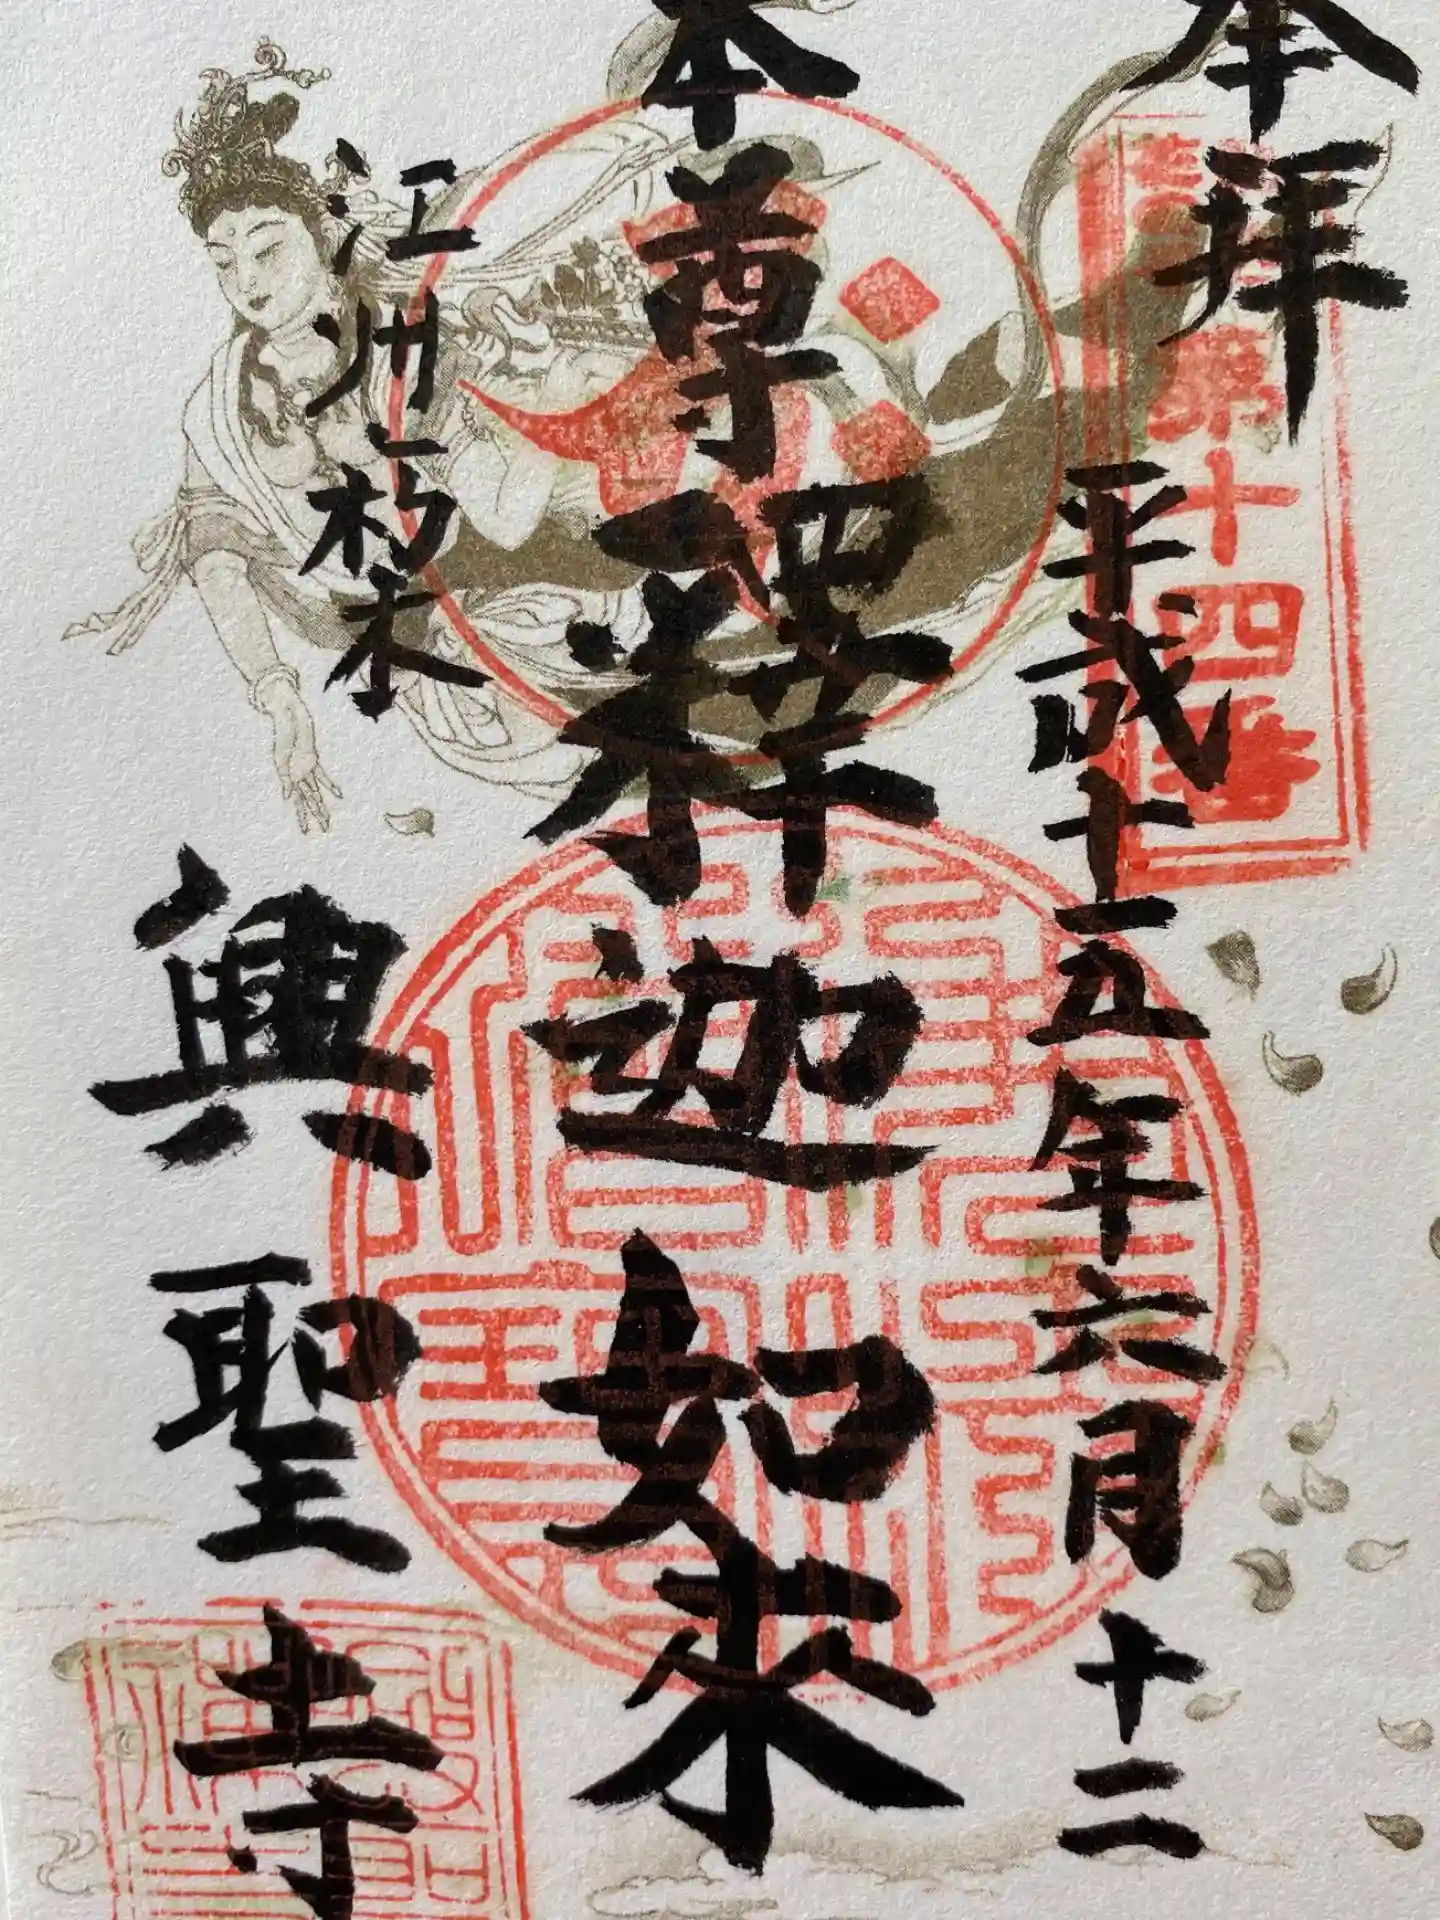 奉拝
第十四番
平成十五年六月十二
本尊
釋迦如来
江州朽木
興聖寺